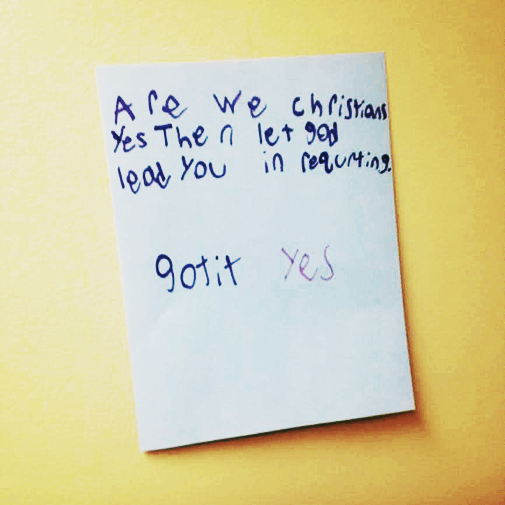 Are we christians
Yes Then let god
lead You in requrting.
gotit yes